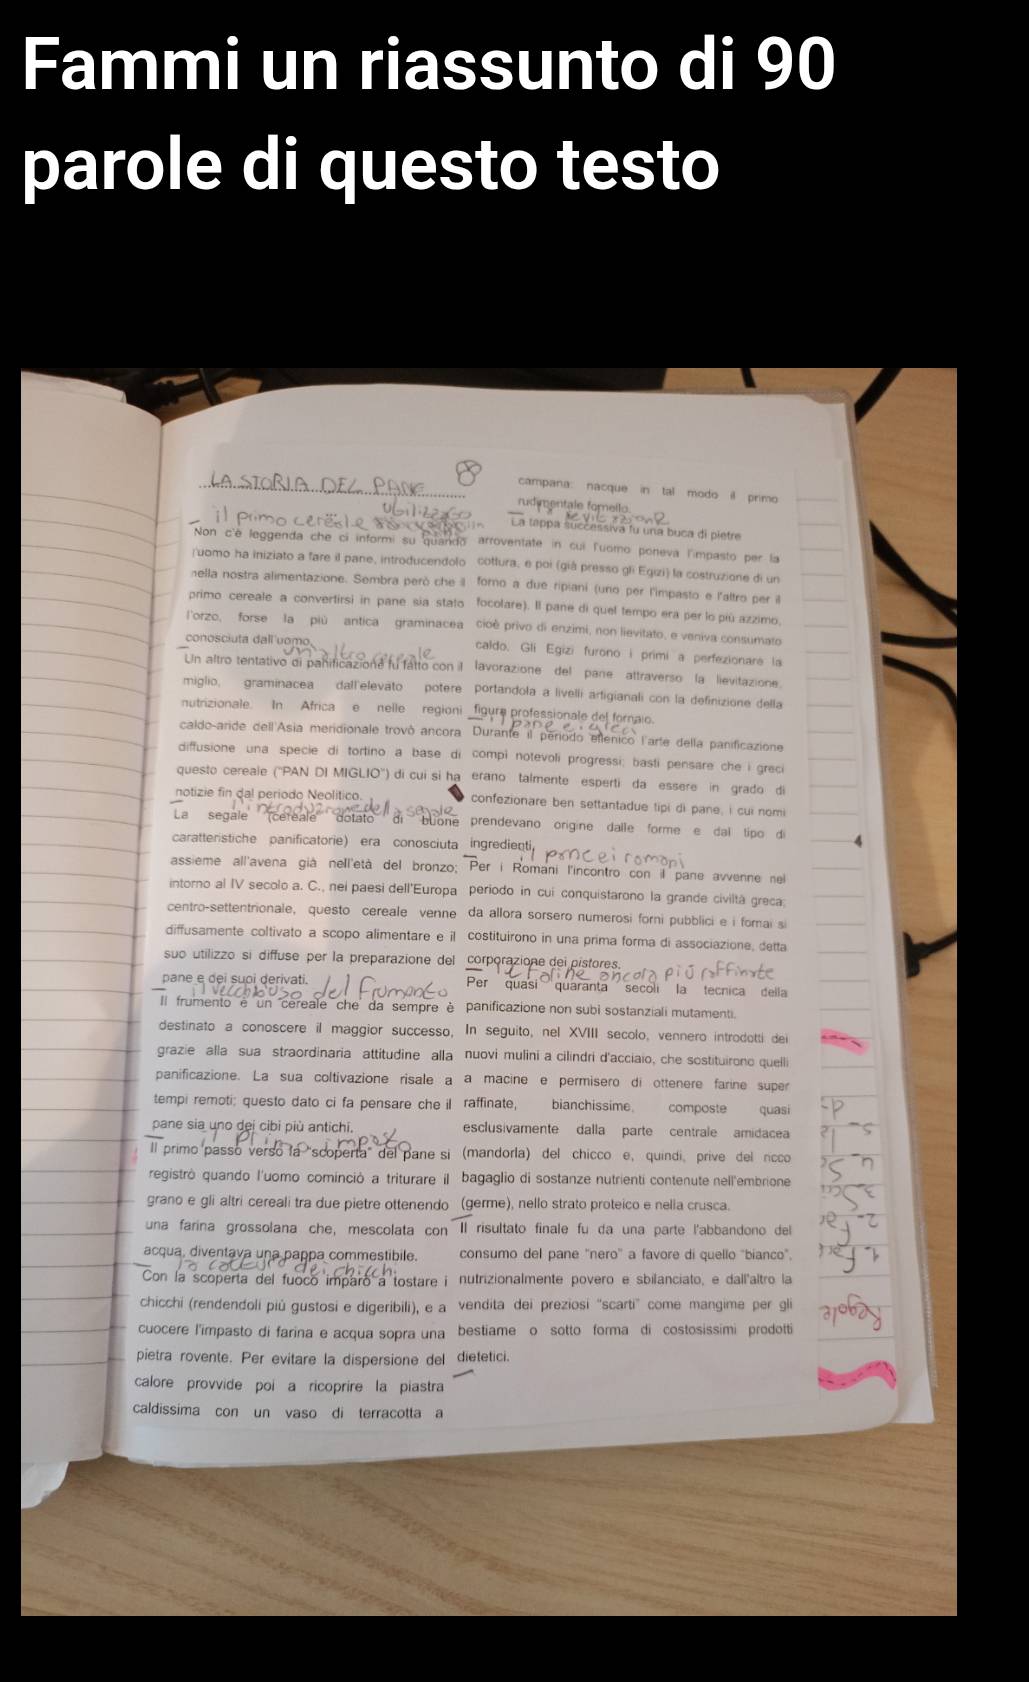 Fammi un riassunto di 90
parole di questo testo
LA STORIA DEL PANE
il primo cereale utilizzato
Non c'è leggenda che ci informi su quando
l'uomo ha iniziato a fare il pane, introducendolo
nella nostra alimentazione. Sembra però che il
primo cereale a convertirsi in pane sia stato
l'orzo, forse la più antica graminacea
conosciuta dall'uomo.
un altro cereale
Un altro tentativo di panificazione fu fatto con il
miglio, graminacea dall'elevato potere
nutrizionale. In Africa e nelle regioni
caldo-aride dell'Asia meridionale trovò ancora
diffusione una specie di tortino a base di
questo cereale ("PAN DI MIGLIO") di cui si ha
notizie fin dal periodo Neolitico.
l'introduzione della segale
La segale (cereale dotato di buone
caratteristiche panificatorie) era conosciuta
assieme all'avena già nell'età del bronzo;
intorno al IV secolo a. C., nei paesi dell'Europa
centro-settentrionale, questo cereale venne
diffusamente coltivato a scopo alimentare e il
suo utilizzo si diffuse per la preparazione del
pane e dei suoi derivati.
il vecchio uso del frumento
Il frumento è un cereale che da sempre è
destinato a conoscere il maggior successo,
grazie alla sua straordinaria attitudine alla
panificazione. La sua coltivazione risale a
tempi remoti; questo dato ci fa pensare che il
pane sia uno dei cibi più antichi.
il primo impasto
Il primo passo verso la "scoperta" del pane si
registrò quando l'uomo cominciò a triturare il
grano e gli altri cereali tra due pietre ottenendo
una farina grossolana che, mescolata con
acqua, diventava una pappa commestibile.
la cottura dei chicchi
Con la scoperta del fuoco imparò a tostare i
chicchi (rendendoli più gustosi e digeribili), e a
cuocere l'impasto di farina e acqua sopra una
pietra rovente. Per evitare la dispersione del
calore provvide poi a ricoprire la piastra
caldissima con un vaso di terracotta a
campana: nacque in tal modo il primo
rudimentale fornello.
La tappa successiva fu una buca di pietre
arroventate in cui l'uomo poneva l'impasto per la
cottura, e poi (già presso gli Egizi) la costruzione di un
forno a due ripiani (uno per l'impasto e l'altro per il
focolare). Il pane di quel tempo era per lo più azzimo,
cioè privo di enzimi, non lievitato, e veniva consumato
caldo. Gli Egizi furono i primi a perfezionare la
lavorazione del pane attraverso la lievitazione,
portandola a livelli artigianali con la definizione della
figura professionale del fornaio.
il pane e i greci
Durante il periodo ellenico l'arte della panificazione
compì notevoli progressi; basti pensare che i greci
erano talmente esperti da essere in grado di
confezionare ben settantadue tipi di pane, i cui nomi
prendevano origine dalle forme e dal tipo di
ingredienti.
il pane e i romani
Per i Romani l'incontro con il pane avvenne nel
periodo in cui conquistarono la grande civiltà greca;
da allora sorsero numerosi forni pubblici e i fornai si
costituirono in una prima forma di associazione, detta
corporazione dei pistores.
le farine ancora più raffinate
Per quasi quaranta secoli la tecnica della
panificazione non subì sostanziali mutamenti.
In seguito, nel XVIII secolo, vennero introdotti dei
nuovi mulini a cilindri d'acciaio, che sostituirono quelli
a macine e permisero di ottenere farine super
raffinate, bianchissime, composte quasi
esclusivamente dalla parte centrale amidacea
(mandorla) del chicco e, quindi, prive del ricco
bagaglio di sostanze nutrienti contenute nell'embrione
(germe), nello strato proteico e nella crusca.
Il risultato finale fu da una parte l'abbandono del
consumo del pane "nero" a favore di quello "bianco",
nutrizionalmente povero e sbilanciato, e dall'altro la
vendita dei preziosi "scarti" come mangime per gli
bestiame o sotto forma di costosissimi prodotti
dietetici.
Regole